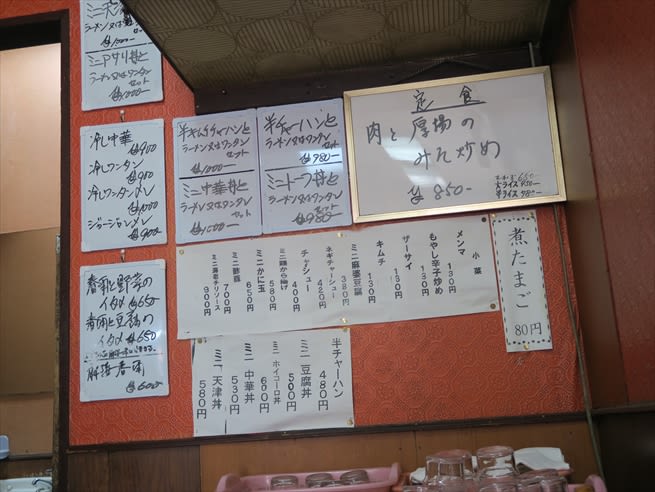 ラーメン又はワンタン
セット
¥1,000-
ミニアサリ丼と
ラーメン又はワンタン
セット
¥1,000-
冷し中華
¥900
冷しワンタン
¥900
冷しワンタンメン
¥1,000
ジャージャンメン
¥900
春雨と野菜の
イタメ ¥650
春雨と豆腐の
イタメ ¥650
¥600
半キムチチャーハンと
ラーメン又はワンタン
セット
¥1,000-
ミニ中華丼と
ラーメン又はワンタン
セット
¥1,000-
半チャーハンと
ラーメン又はワンタン
セット
¥980-
ミニトーフ丼と
ラーメン又はワンタン
セット
¥980-
定食
肉と厚揚の
みそ炒め
¥850-
大ライス
半ライス
小菜
メンマ 130円
もやし辛子炒め 130円
ザーサイ
キムチ 130円
ミニ麻婆豆腐 380円
ネギチャーシュー 420円
チャシュー 400円
ミニ鶏から揚げ 580円
ミニかに玉 650円
ミニ酢豚 700円
ミニ海老チリソース 900円
煮たまご
80円
半チャーハン 480円
ミニ 豆腐丼 500円
ミニ ホイコーロ丼 600円
ミニ 中華丼 530円
ミニ 天津丼 580円